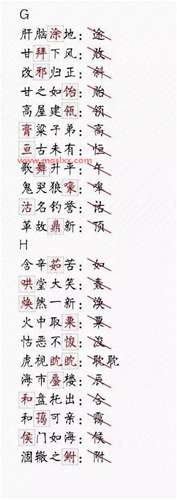 G
肝脑涂地：途
甘拜下风：败
改邪归正：斜
甘之如饴：贻
高屋建瓴：领
膏粱子弟：高
亘古未有：恒
歌舞升平：午
鬼哭狼嚎：嗥
沽名钓誉：估
革故鼎新：顶
H
含辛茹苦：如
哄堂大笑：轰
焕然一新：涣
火中取栗：粟
怙恶不悛：浚
虎视眈眈：耽耽
海市蜃楼：辰
和盘托出：合
和蔼可亲：霭
侯门如海：候
涸辙之鲋：附
www.mgslxx.com